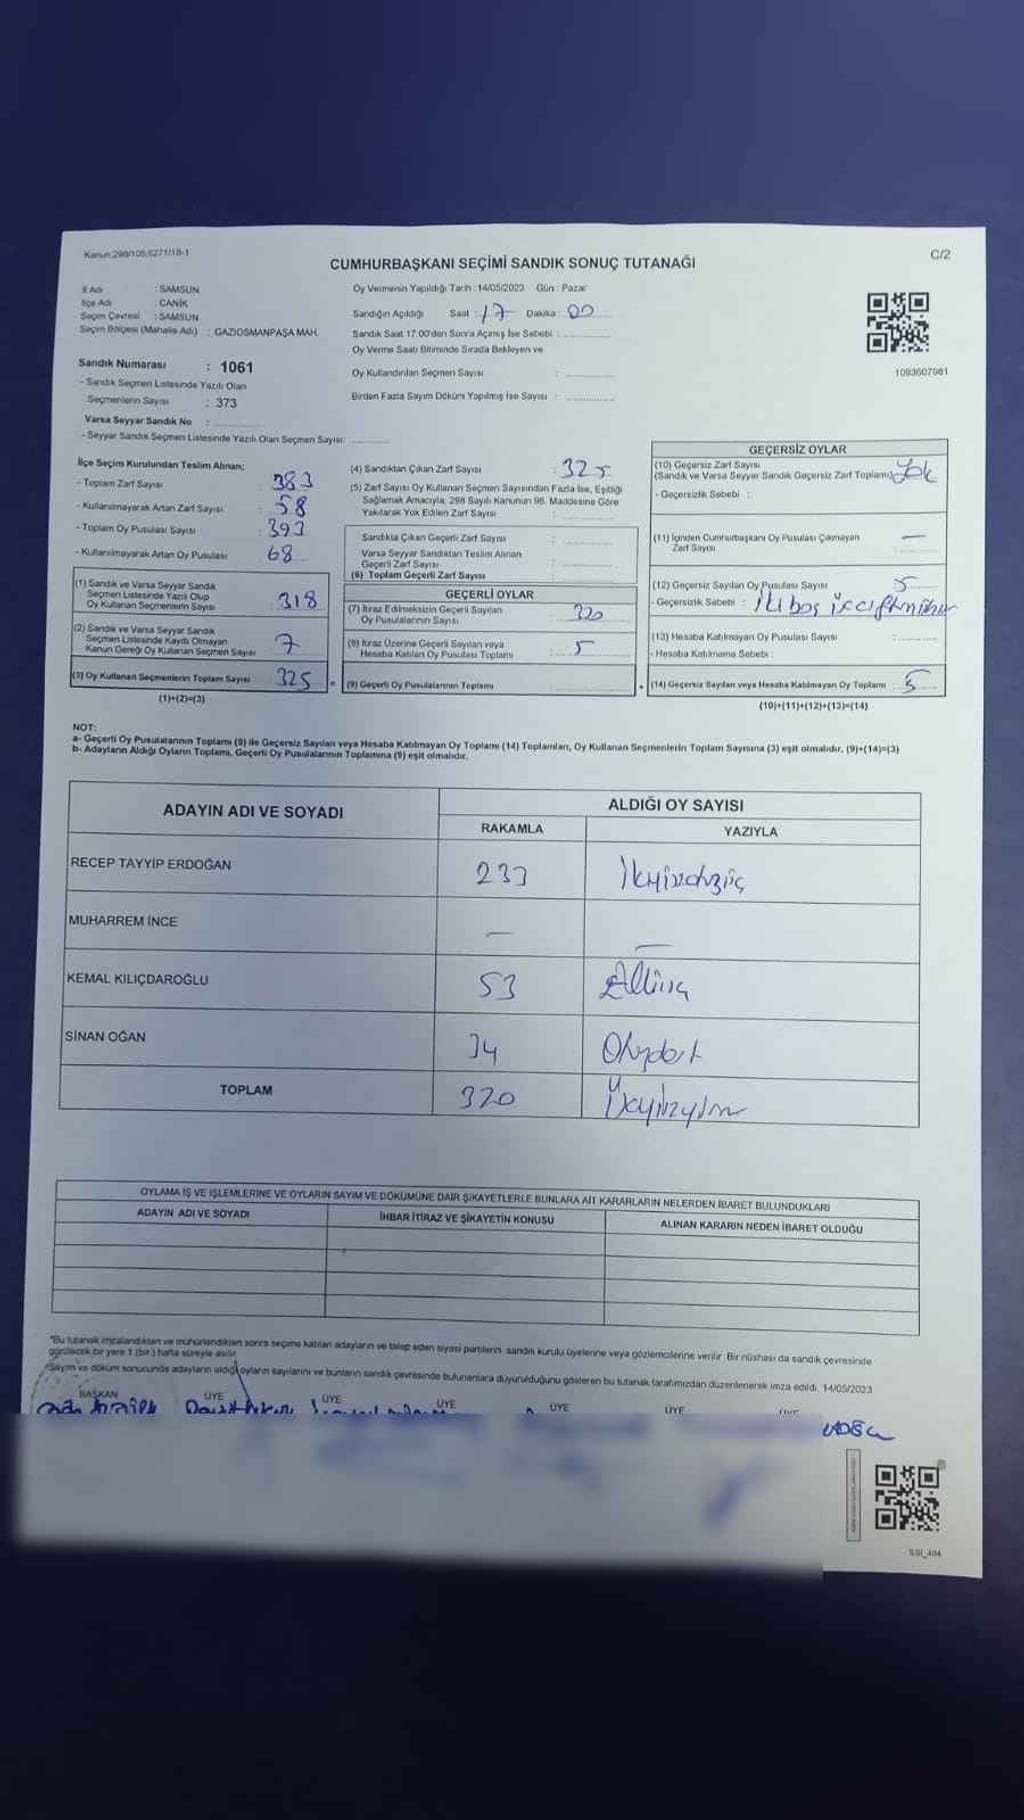 Kanun:298/105,6271/18-1
C/2
CUMHURBAŞKANI SEÇİMİ SANDIK SONUÇ TUTANAĞI
İl Adı : SAMSUN
İlçe Adı : CANİK
Seçim Çevresi : SAMSUN
Seçim Bölgesi (Mahalle Adı) : GAZİOSMANPAŞA MAH.
Oy Vermenin Yapıldığı Tarih : 14/05/2023 Gün : Pazar
Sandığın Açıldığı Saat : 17 Dakika : 00
Sandık Saat 17.00'den Sonra Açılmış İse Sebebi :
Oy Verme Saati Bitiminde Sırada Bekleyen ve
Oy Kullandırılan Seçmen Sayısı :
Birden Fazla Sayım Döküm Yapılmış İse Sayısı :
1093607981
Sandık Numarası : 1061
- Sandık Seçmen Listesinde Yazılı Olan
Seçmenlerin Sayısı : 373
Varsa Seyyar Sandık No :
- Seyyar Sandık Seçmen Listesinde Yazılı Olan Seçmen Sayısı:
İlçe Seçim Kurulundan Teslim Alınan;
- Toplam Zarf Sayısı : 383
- Kullanılmayarak Artan Zarf Sayısı : 58
- Toplam Oy Pusulası Sayısı : 393
- Kullanılmayarak Artan Oy Pusulası : 68
(1) Sandık ve Varsa Seyyar Sandık
Seçmen Listesinde Yazılı Olup
Oy Kullanan Seçmenlerin Sayısı : 318
(2) Sandık ve Varsa Seyyar Sandık
Seçmen Listesinde Kayıtlı Olmayan
Kanun Gereği Oy Kullanan Seçmen Sayısı : 7
(3) Oy Kullanan Seçmenlerin Toplam Sayısı : 325
(1)+(2)=(3)
(4) Sandıktan Çıkan Zarf Sayısı : 325
(5) Zarf Sayısı Oy Kullanan Seçmen Sayısından Fazla İse, Eşitliği
Sağlamak Amacıyla; 298 Sayılı Kanunun 98. Maddesine Göre
Yakılarak Yok Edilen Zarf Sayısı :
Sandıkta Çıkan Geçerli Zarf Sayısı :
Varsa Seyyar Sandıktan Teslim Alınan
Geçerli Zarf Sayısı :
(6) Toplam Geçerli Zarf Sayısı :
GEÇERLİ OYLAR
(7) İtiraz Edilmeksizin Geçerli Sayılan
Oy Pusulalarının Sayısı : 320
(8) İtiraz Üzerine Geçerli Sayılan veya
Hesaba Katılan Oy Pusulası Toplamı : 5
= (9) Geçerli Oy Pusulalarının Toplamı :
GEÇERSİZ OYLAR
(10) Geçersiz Zarf Sayısı
(Sandık ve Varsa Seyyar Sandık Geçersiz Zarf Toplamı) : Yok
- Geçersizlik Sebebi :
(11) İçinden Cumhurbaşkanı Oy Pusulası Çıkmayan
Zarf Sayısı : —
(12) Geçersiz Sayılan Oy Pusulası Sayısı : 5
- Geçersizlik Sebebi : boş
(13) Hesaba Katılmayan Oy Pusulası Sayısı :
- Hesaba Katılmama Sebebi :
+ (14) Geçersiz Sayılan veya Hesaba Katılmayan Oy Toplamı : 5
(10)+(11)+(12)+(13)=(14)
NOT:
a- Geçerli Oy Pusulalarının Toplamı (9) ile Geçersiz Sayılan veya Hesaba Katılmayan Oy Toplamı (14) Toplamları, Oy Kullanan Seçmenlerin Toplam Sayısına (3) eşit olmalıdır. (9)+(14)=(3)
b- Adayların Aldığı Oyların Toplamı, Geçerli Oy Pusulalarının Toplamına (9) eşit olmalıdır.
ADAYIN ADI VE SOYADI
ALDIĞI OY SAYISI
RAKAMLA YAZIYLA
RECEP TAYYİP ERDOĞAN 233
MUHARREM İNCE — —
KEMAL KILIÇDAROĞLU 53 Elliüç
SİNAN OĞAN 34 Otuzdört
TOPLAM 320 Üçyüzyirmi
OYLAMA İŞ VE İŞLEMLERİNE VE OYLARIN SAYIM VE DÖKÜMÜNE DAİR ŞİKAYETLERLE BUNLARA AİT KARARLARIN NELERDEN İBARET BULUNDUKLARI
ADAYIN ADI VE SOYADI İHBAR İTİRAZ VE ŞİKAYETİN KONUSU ALINAN KARARIN NEDEN İBARET OLDUĞU
*Bu tutanak imzalandıktan ve mühürlendikten sonra seçime katılan adayların ve talep eden siyasi partilerin sandık kurulu üyelerine veya gözlemcilerine verilir. Bir nüshası da sandık çevresinde
görülecek bir yere 1 (bir) hafta süreyle asılır.
*Sayım ve döküm sonucunda adayların aldığı oyların sayılarını ve bunların sandık çevresinde bulunanlara duyurulduğunu gösteren bu tutanak tarafımızdan düzenlenerek imza edildi. 14/05/2023
BAŞKAN ÜYE ÜYE ÜYE ÜYE ÜYE
SSI_404